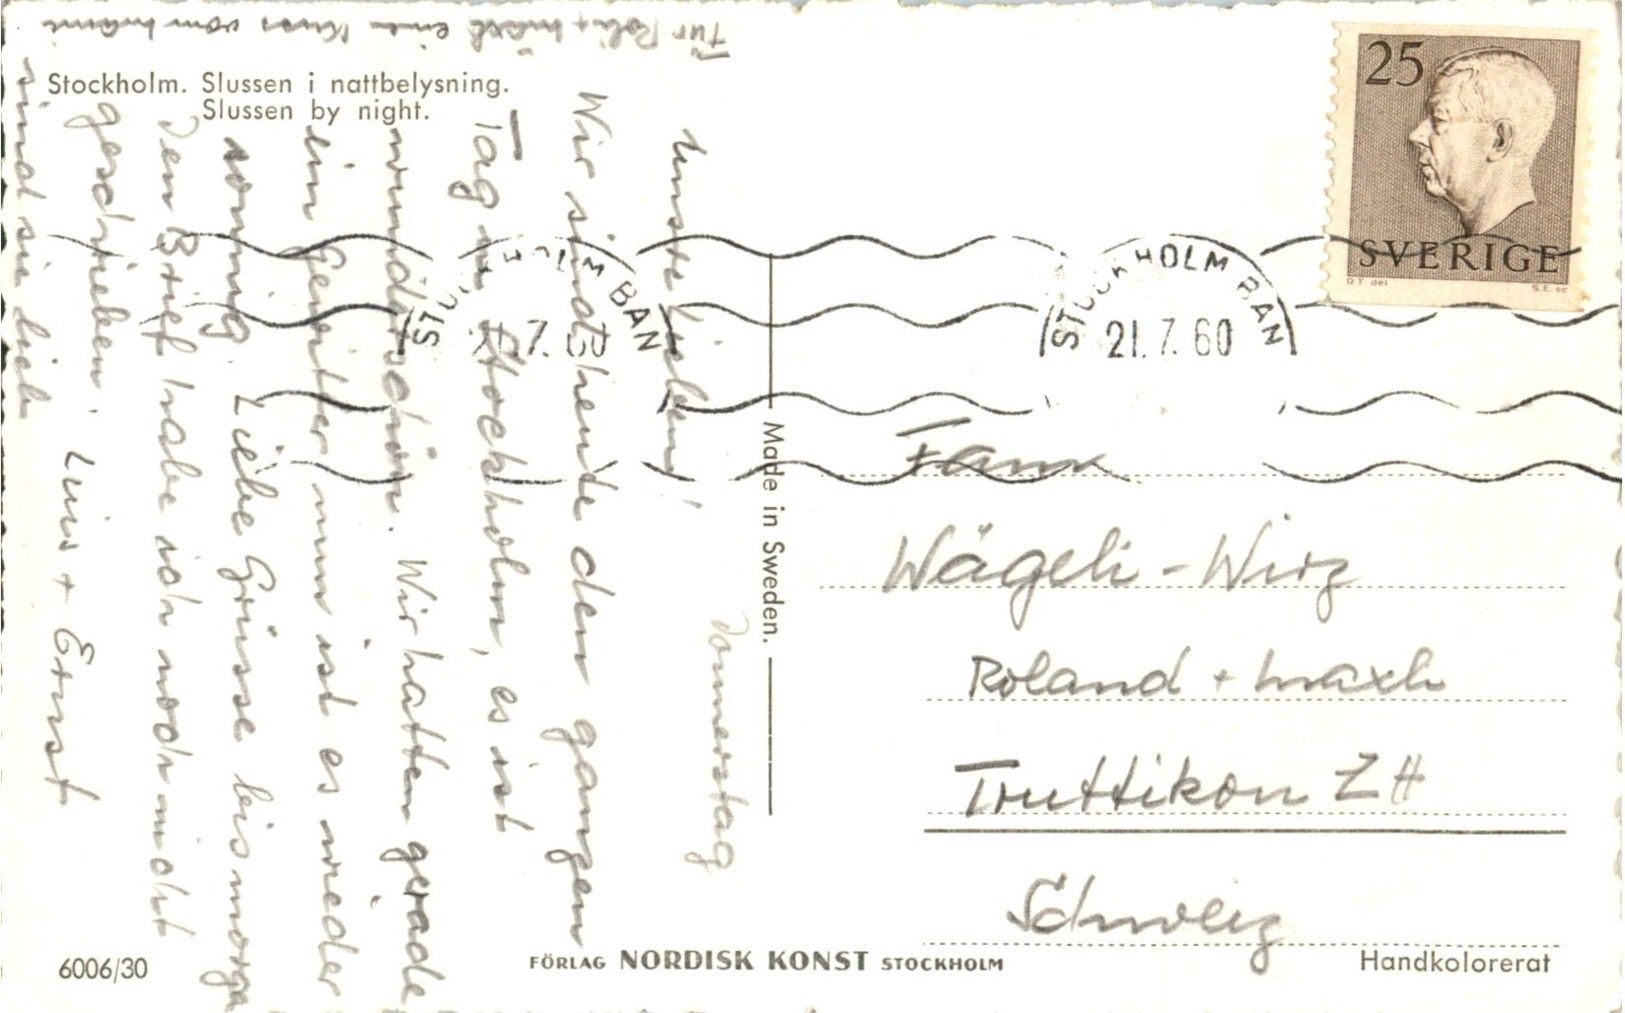 Stockholm. Slussen i nattbelysning.
Slussen by night.
25
SVERIGE
D.T. del
S.E. sc
STOCKHOLM BAN
21.7.60
STOCKHOLM BAN
7.60
Made in Sweden.
Donnerstag
Unsre Lieben!
Wir sind heute den ganzen
Tag in Stockholm, es ist
wunderschön. Wir hatten gerade
ein Gewitter nun ist es wieder
sonnig. Liebe Grüsse bis morgen
Den Brief habe ich noch nicht
geschrieben. Luis + Ernst
sind sie lieb
Für Roli + Maxli einen Kuss vom Mami
Fam
Wägeli-Wirz
Roland + Maxli
Truttikon ZH
Schweiz
6006/30
FÖRLAG NORDISK KONST STOCKHOLM
Handkolorerat